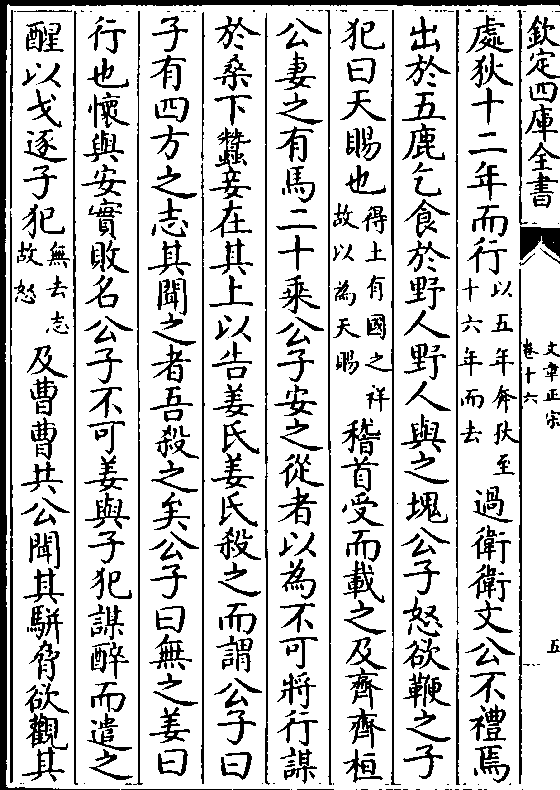 欽定四庫全書
文章正宗
卷十六
五
處狄十二年而行以五年奔狄至十六年而去過衛衛文公不禮焉
出於五鹿乞食於野人野人與之塊公子怒欲鞭之子
犯曰天賜也得土有國之祥故以為天賜稽首受而載之及齊齊桓
公妻之有馬二十乘公子安之從者以為不可將行謀
於桑下蠶妾在其上以告姜氏姜氏殺之而謂公子曰
子有四方之志其聞之者吾殺之矣公子曰無之姜曰
行也懷與安實敗名公子不可姜與子犯謀醉而遣之
醒以戈逐子犯無去志故怒及曹曹共公聞其駢脅欲觀其